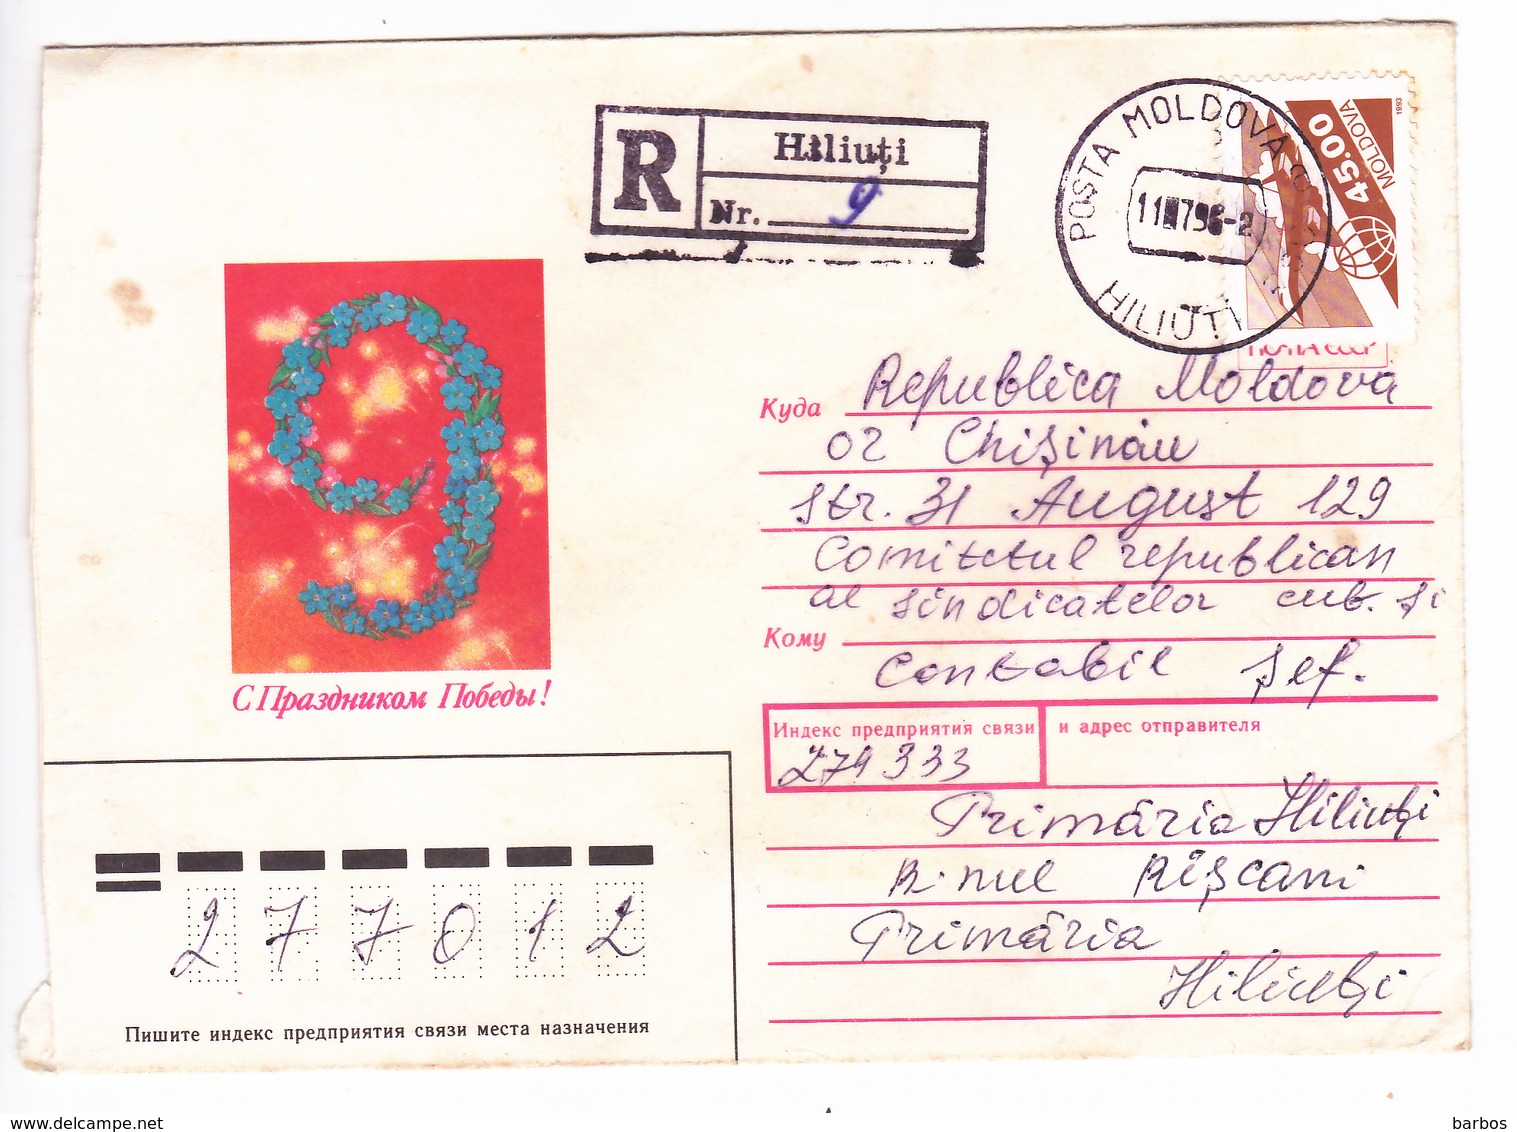 R
Hiliuți
Nr. 9
POȘTA MOLDOVA
HILIUȚI
1993
45.00
MOLDOVA
ПОЧТА СССР
С Праздником Победы!
Куда Republica Moldova
or Chișinău
str. 31 August 129
Comitetul republican
al sindicatelor cult. și
Кому
Contabil șef.
Индекс предприятия связи и адрес отправителя
279333
Primăria Hiliuți
R-nul Rîșcani
Primăria
Hiliuți
277012
Пишите индекс предприятия связи места назначения
delcampe.net
barbos